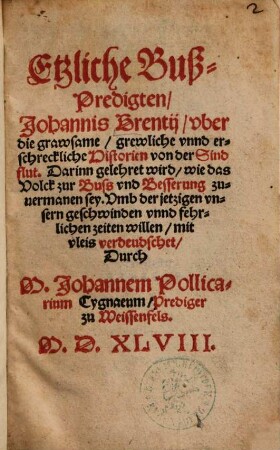 2
Etzliche Buß-
Predigten/
Johannis Brentij/ vber
die grawsame/ grewliche vnnd er-
schreckliche Historien von der Sind
flut. Darinn gelehret wird/ wie das
Volck zur Buß vnd Besserung zu-
uermanen sey. Vmb der jetzigen vn-
sern geschwinden vnnd fehr-
lichen zeiten willen/ mit
vleis verdeudschet/
Durch
M. Johannem Pollica-
rium Cygnaeum/ Prediger
zu Weissenfels.
M. D. XLVIII.